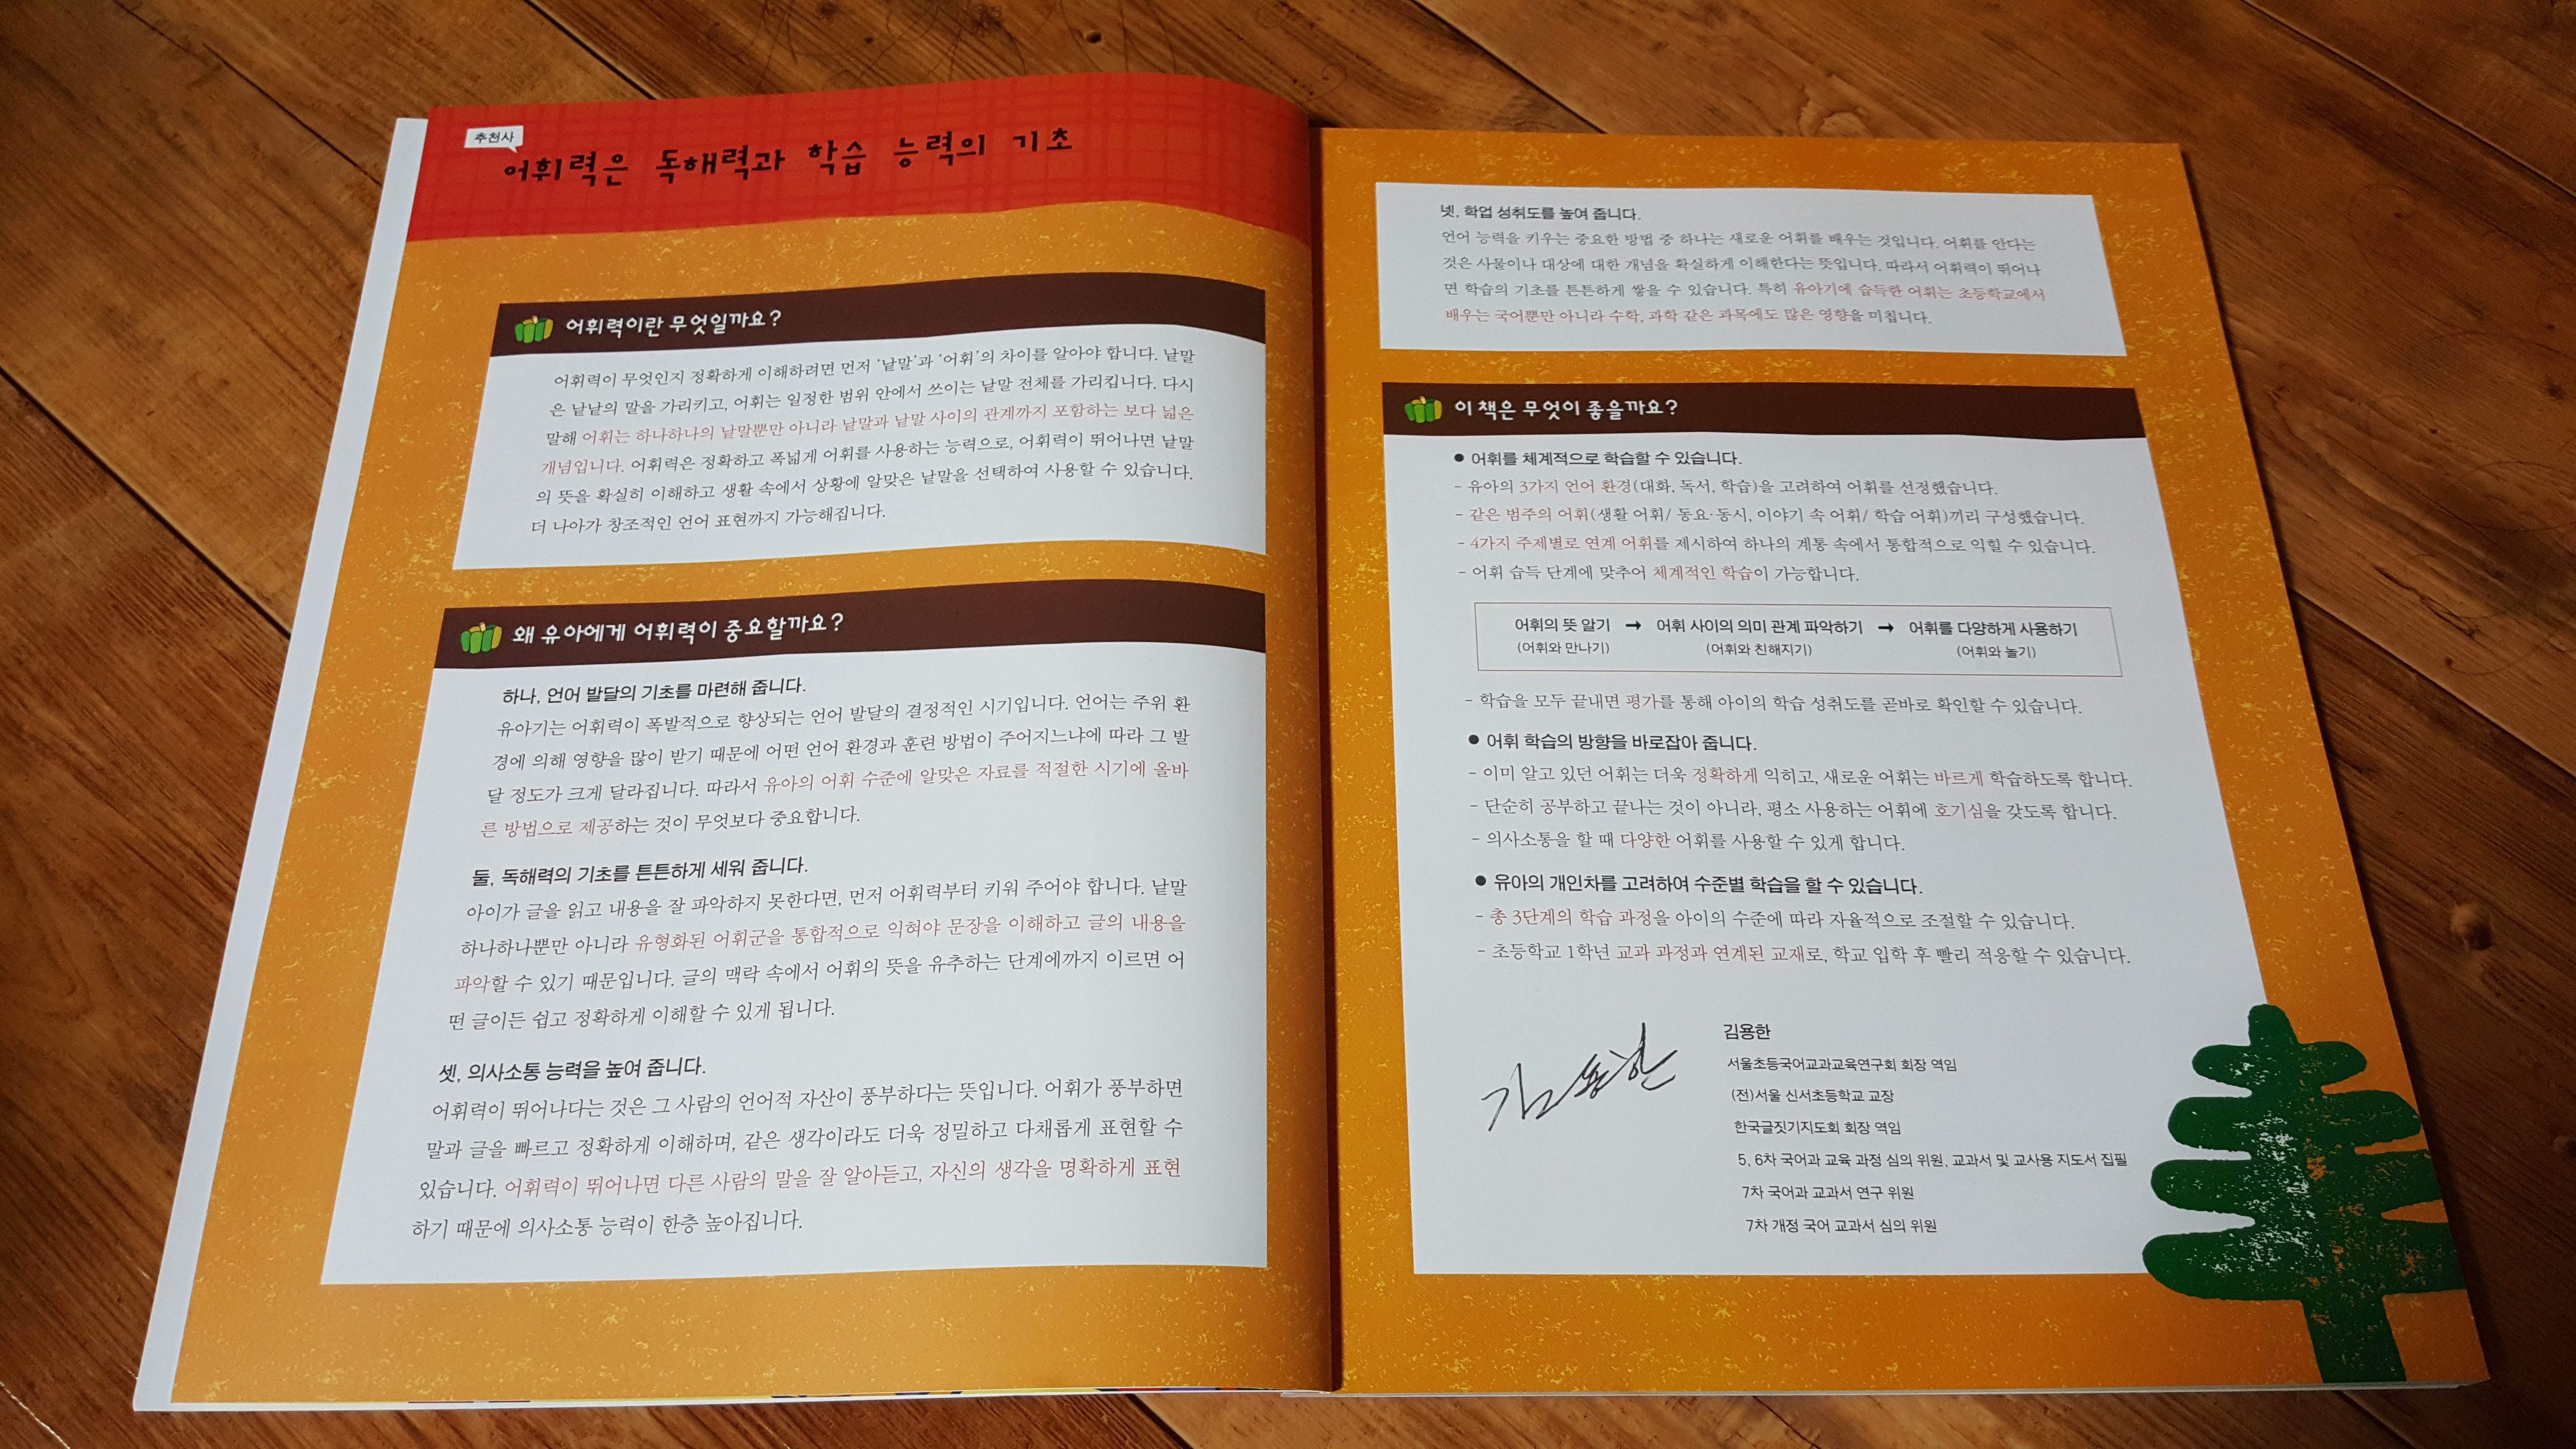 추천사
어휘력은 독해력과 학습 능력의 기초
어휘력이란 무엇일까요?
어휘력이 무엇인지 정확하게 이해하려면 먼저 ‘낱말’과 ‘어휘’의 차이를 알아야 합니다. 낱말
은 낱낱의 말을 가리키고, 어휘는 일정한 범위 안에서 쓰이는 낱말 전체를 가리킵니다. 다시
말해 어휘는 하나하나의 낱말뿐만 아니라 낱말과 낱말 사이의 관계까지 포함하는 보다 넓은
개념입니다. 어휘력은 정확하고 폭넓게 어휘를 사용하는 능력으로, 어휘력이 뛰어나면 낱말
의 뜻을 확실히 이해하고 생활 속에서 상황에 알맞은 낱말을 선택하여 사용할 수 있습니다.
더 나아가 창조적인 언어 표현까지 가능해집니다.
왜 유아에게 어휘력이 중요할까요?
하나, 언어 발달의 기초를 마련해 줍니다.
유아기는 어휘력이 폭발적으로 향상되는 언어 발달의 결정적인 시기입니다. 언어는 주위 환
경에 의해 영향을 많이 받기 때문에 어떤 언어 환경과 훈련 방법이 주어지느냐에 따라 그 발
달 정도가 크게 달라집니다. 따라서 유아의 어휘 수준에 알맞은 자료를 적절한 시기에 올바
른 방법으로 제공하는 것이 무엇보다 중요합니다.
둘, 독해력의 기초를 튼튼하게 세워 줍니다.
아이가 글을 읽고 내용을 잘 파악하지 못한다면, 먼저 어휘력부터 키워 주어야 합니다. 낱말
하나하나뿐만 아니라 유형화된 어휘군을 통합적으로 익혀야 문장을 이해하고 글의 내용을
파악할 수 있기 때문입니다. 글의 맥락 속에서 어휘의 뜻을 유추하는 단계에까지 이르면 어
떤 글이든 쉽고 정확하게 이해할 수 있게 됩니다.
셋, 의사소통 능력을 높여 줍니다.
어휘력이 뛰어나다는 것은 그 사람의 언어적 자산이 풍부하다는 뜻입니다. 어휘가 풍부하면
말과 글을 빠르고 정확하게 이해하며, 같은 생각이라도 더욱 정밀하고 다채롭게 표현할 수
있습니다. 어휘력이 뛰어나면 다른 사람의 말을 잘 알아듣고, 자신의 생각을 명확하게 표현
하기 때문에 의사소통 능력이 한층 높아집니다.
넷, 학업 성취도를 높여 줍니다.
언어 능력을 키우는 중요한 방법 중 하나는 새로운 어휘를 배우는 것입니다. 어휘를 안다는
것은 사물이나 대상에 대한 개념을 확실하게 이해한다는 뜻입니다. 따라서 어휘력이 뛰어나
면 학습의 기초를 튼튼하게 쌓을 수 있습니다. 특히 유아기에 습득한 어휘는 초등학교에서
배우는 국어뿐만 아니라 수학, 과학 같은 과목에도 많은 영향을 미칩니다.
이 책은 무엇이 좋을까요?
● 어휘를 체계적으로 학습할 수 있습니다.
- 유아의 3가지 언어 환경(대화, 독서, 학습)을 고려하여 어휘를 선정했습니다.
- 같은 범주의 어휘(생활 어휘/ 동요·동시, 이야기 속 어휘/ 학습 어휘)끼리 구성했습니다.
- 4가지 주제별로 연계 어휘를 제시하여 하나의 계통 속에서 통합적으로 익힐 수 있습니다.
- 어휘 습득 단계에 맞추어 체계적인 학습이 가능합니다.
어휘의 뜻 알기 → 어휘 사이의 의미 관계 파악하기 → 어휘를 다양하게 사용하기
(어휘와 만나기) (어휘와 친해지기) (어휘와 놀기)
- 학습을 모두 끝내면 평가를 통해 아이의 학습 성취도를 곧바로 확인할 수 있습니다.
● 어휘 학습의 방향을 바로잡아 줍니다.
- 이미 알고 있던 어휘는 더욱 정확하게 익히고, 새로운 어휘는 바르게 학습하도록 합니다.
- 단순히 공부하고 끝나는 것이 아니라, 평소 사용하는 어휘에 호기심을 갖도록 합니다.
- 의사소통을 할 때 다양한 어휘를 사용할 수 있게 합니다.
● 유아의 개인차를 고려하여 수준별 학습을 할 수 있습니다.
- 총 3단계의 학습 과정을 아이의 수준에 따라 자율적으로 조절할 수 있습니다.
- 초등학교 1학년 교과 과정과 연계된 교재로, 학교 입학 후 빨리 적응할 수 있습니다.
김용한
김용한
서울초등국어교과교육연구회 회장 역임
(전)서울 신서초등학교 교장
한국글짓기지도회 회장 역임
5, 6차 국어과 교육 과정 심의 위원, 교과서 및 교사용 지도서 집필
7차 국어과 교과서 연구 위원
7차 개정 국어 교과서 심의 위원